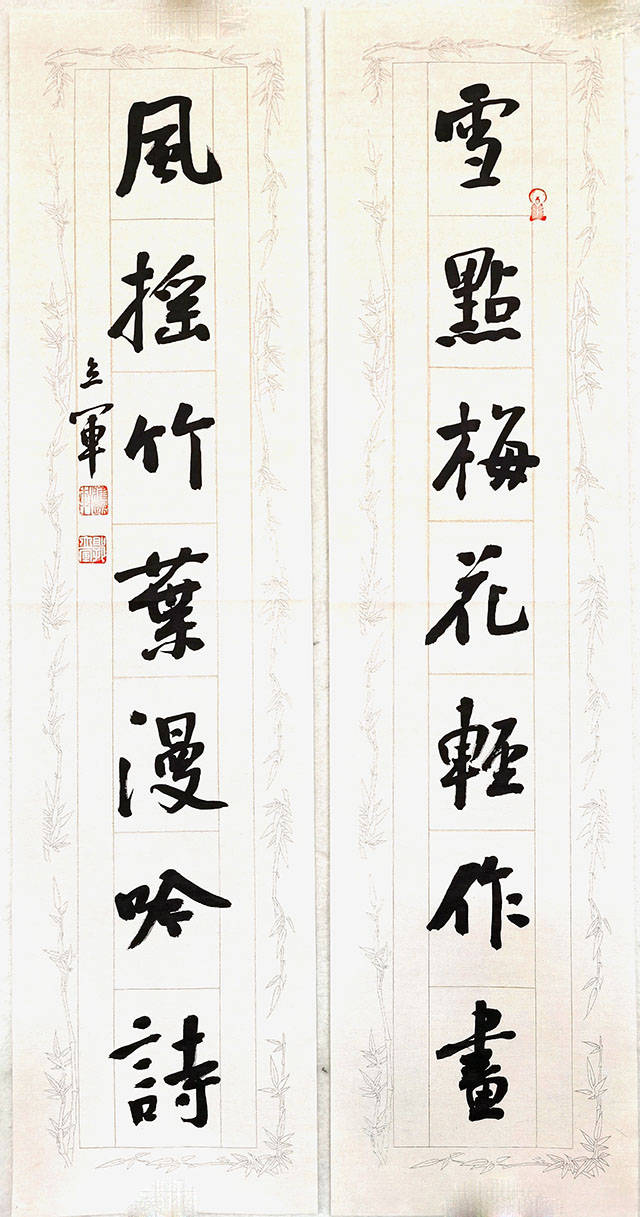 雪點梅花輕作畫
風摇竹葉漫吟詩
立軍